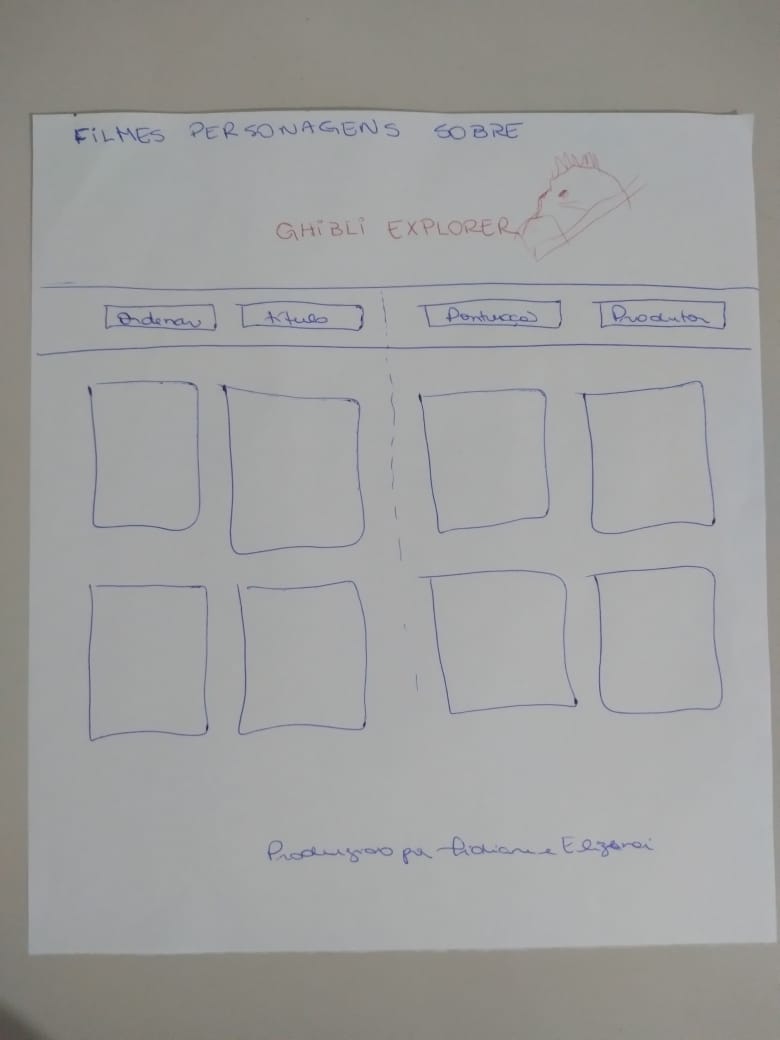 FILMES PERSONAGENS SOBRE
GHIBLI EXPLORER
Ordenar Título Pontuação Produtor
Produzido por Lidiane e